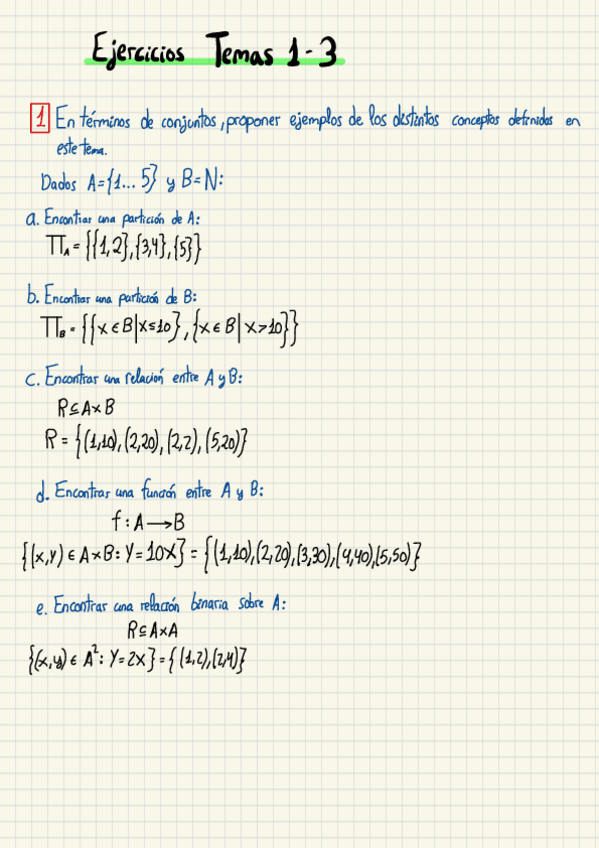 Ejercicios Temas 1-3
1 En términos de conjuntos, proponer ejemplos de los distintos conceptos definidos en
este tema.
Dados A={1... 5} y B=N:
a. Encontrar una partición de A:
∏A = {{1,2},{3,4},{5}}
b. Encontrar una partición de B:
∏B = {{x ∈ B|x≤10},{x ∈ B|x>10}}
c. Encontrar una relación entre A y B:
R⊆A×B
R = {(1,10),(2,20),(2,2),(5,20)}
d. Encontrar una función entre A y B:
f: A → B
{(x,y) ∈ A×B: Y=10X} = {(1,10),(2,20),(3,30),(4,40),(5,50)}
e. Encontrar una relación binaria sobre A:
R⊆A×A
{(x,y) ∈ A²: Y=2X} = {(1,2),(2,4)}